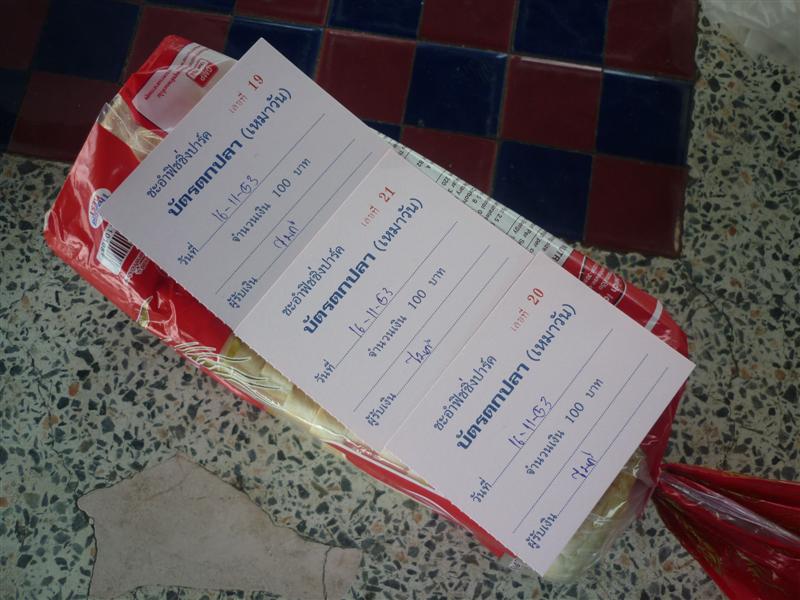 เลขที่ 19
ชะอำฟิชชิ่งปาร์ค
บัตรตกปลา (เหมาวัน)
วันที่ 16-11-53
จำนวนเงิน 100 บาท
ผู้รับเงิน
เลขที่ 21
ชะอำฟิชชิ่งปาร์ค
บัตรตกปลา (เหมาวัน)
วันที่ 16-11-53
จำนวนเงิน 100 บาท
ผู้รับเงิน
เลขที่ 20
ชะอำฟิชชิ่งปาร์ค
บัตรตกปลา (เหมาวัน)
วันที่ 16-11-53
จำนวนเงิน 100 บาท
ผู้รับเงิน